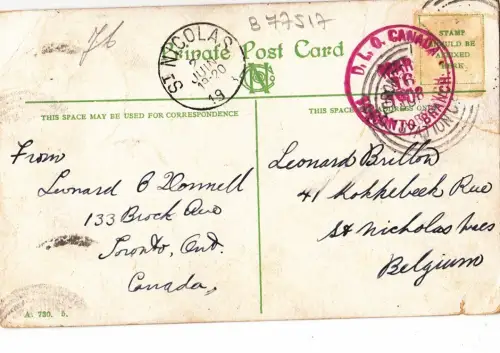 B 77517
76
Private Post Card
ST NICOLAS
JUIN
19-20
19
D. L. O. CANADA
TORONTO BRANCH
STAMP
THIS SPACE MAY BE USED FOR CORRESPONDENCE
THIS SPACE FOR ADDRESS ONLY
From
Leonard O Donnell
133 Brock Ave
Toronto, Ont.
Canada.
Leonard Brillon
41 Mokkebeek Rue
St Nicholas Waes
Belgium
A. 730. 5.